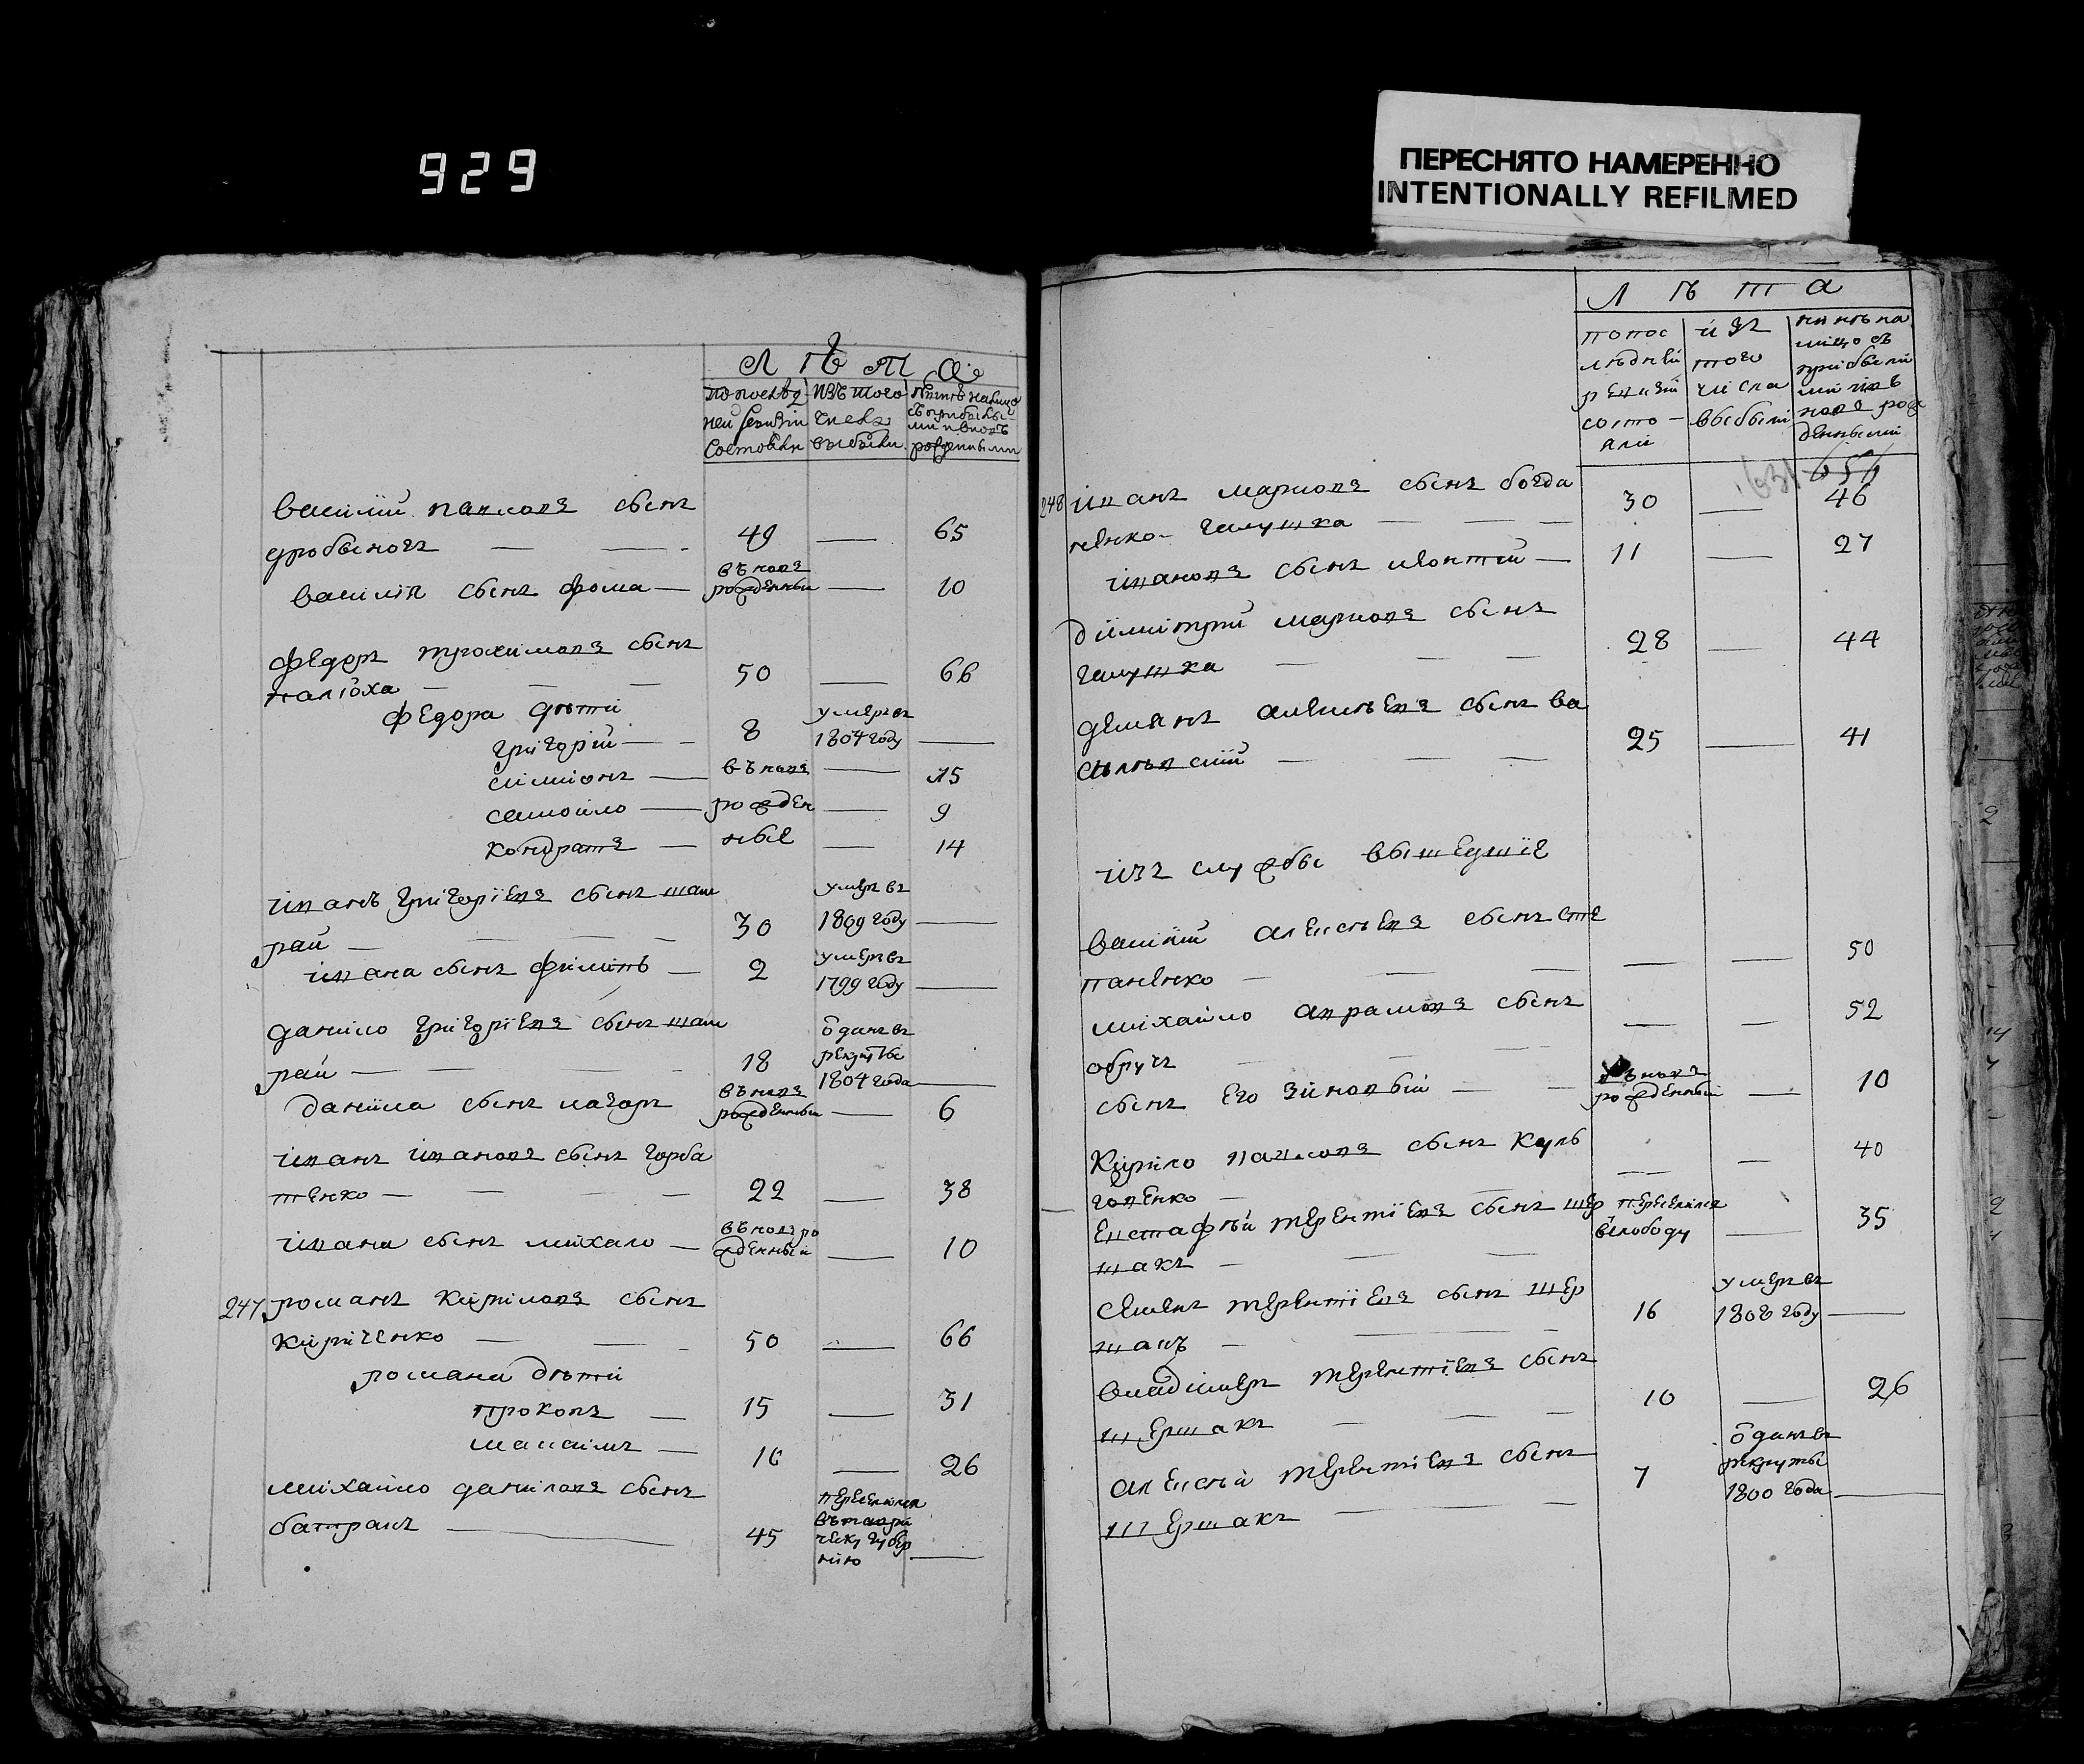 929
ПЕРЕСНЯТО НАМЕРЕННО
INTENTIONALLY REFILMED
Л Ѣ Т А
по послѣд изъ того нынѣ налицо
ней ревизіи числа съ прибылы
ми и вновь
состояли выбыли рожденными
василій павловъ сынъ
дробыногъ — — 49 — 65
василія сынъ фома — въновъ рожденный — 10
федоръ трохимовъ сынъ
малюха — — — 50 — 66
федора дѣти
григорій — 8 умеръ въ 1804 году —
симионъ — въновъ — 15
самойло — рожден — 9
кондратъ — ные — 14
иванъ григоріевъ сынъ шам
рай — — — 30 умеръ въ 1809 году —
ивана сынъ филипъ — 2 умеръ въ 1799 году —
данило григоріевъ сынъ шам
рай — — — 18 ѿданъ въ рекруты 1804 года —
данила сынъ лазаръ въновъ рожденный — 6
иванъ ивановъ сынъ горба
тенко — — — 22 — 38
ивана сынъ михало — въновъ ро жденный — 10
247 романъ кириловъ сынъ
кириченко — — 50 — 66
романа дѣти
прокопъ — 15 — 31
максимъ — 10 — 26
михайло даниловъ сынъ
батранъ — 45 переселился въ таври ческ губер нію —
Л Ѣ Т А
попос изъ нынѣ на
лѣдней того лицо съ
ревизіи числа прибылы
ми и въ
состо- выбыли новъ рож
яли денными
631 656
248 иванъ марковъ сынъ богда 30 — 46
ненко галушка — —
ивановъ сынъ леонтій — 11 — 27
димитрій марковъ сынъ
галушка — — — 28 — 44
демянъ алексѣевъ сынъ ва
силѣвскій — — — 25 — 41
изъ службы вышедшіе
василій алексѣевъ сынъ сте
паненко — — — — — 50
михайло аврамовъ сынъ — — 52
обручъ — — —
сынъ его зиновый — — въновъ рожденный — 10
кирило павловъ сынъ кулъ — — 40
говенко —
евстафѣй терентіевъ сынъ шер переселился въслободу — 35
шакъ — — —
семенъ терентіевъ сынъ шер 16 умеръ въ 1808 году —
шакъ —
владимеръ терентіевъ сынъ
шершакъ — — — 10 — 26
алексѣй терентіевъ сынъ 7 ѿданъ въ рекруты 1800 года —
шершакъ — — —